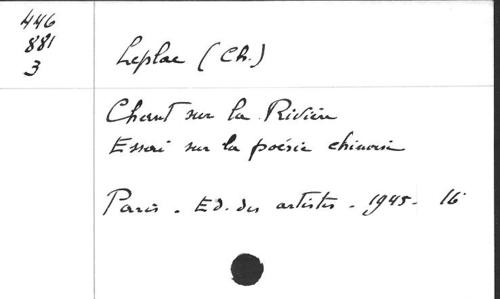 446
881
3
Leplae (Ch.)
Chant sur la Rivière
Essai sur la poésie chinoise
Paris. Ed. des artistes. 1945. 16